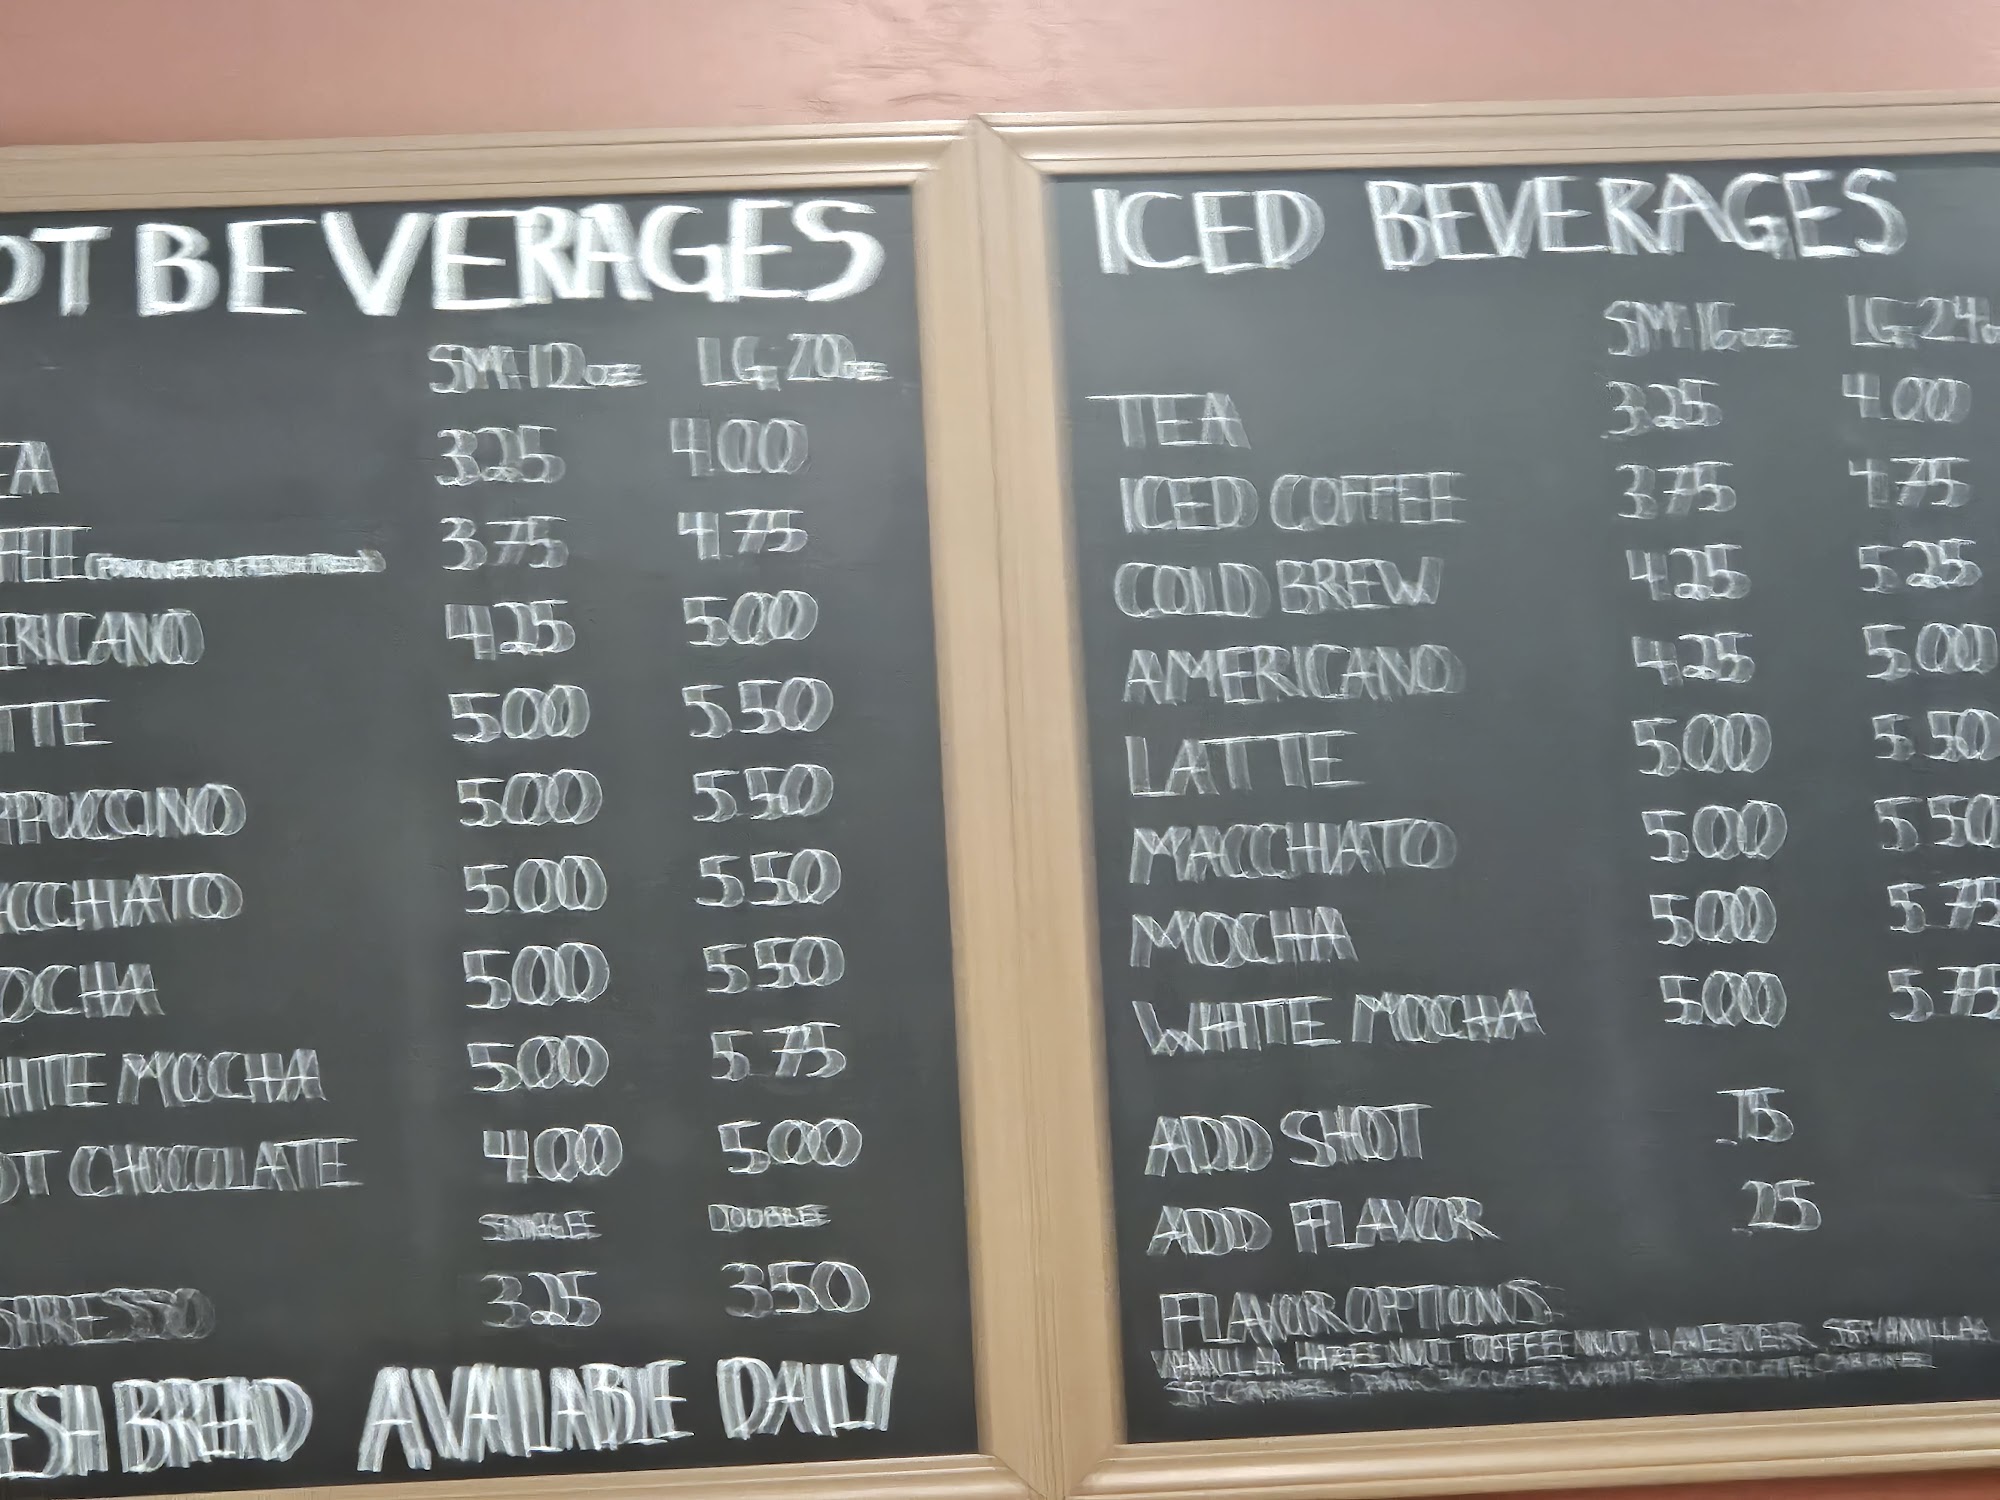 OT BEVERAGES
SM-12oz LG-20oz
EA 3.25 4.00
FFEE 3.75 4.75
ERICANO 4.25 5.00
TTE 5.00 5.50
PPUCCINO 5.00 5.50
ACCHIATO 5.00 5.50
OCHA 5.00 5.50
HITE MOCHA 5.00 5.75
OT CHOCOLATE 4.00 5.00
SINGLE DOUBLE
SPRESSO 3.25 3.50
ESH BREAD AVAILABLE DAILY
ICED BEVERAGES
SM-16oz LG-24o
TEA 3.25 4.00
ICED COFFEE 3.75 4.75
COLD BREW 4.25 5.25
AMERICANO 4.25 5.00
LATTE 5.00 5.50
MACCHIATO 5.00 5.50
MOCHA 5.00 5.75
WHITE MOCHA 5.00 5.75
ADD SHOT .75
ADD FLAVOR .25
FLAVOR OPTIONS
VANILLA HAZELNUT TOFFEE NUT SF VANILLA
SF CARAMEL DARK CHOCOLATE WHITE CHOCOLATE